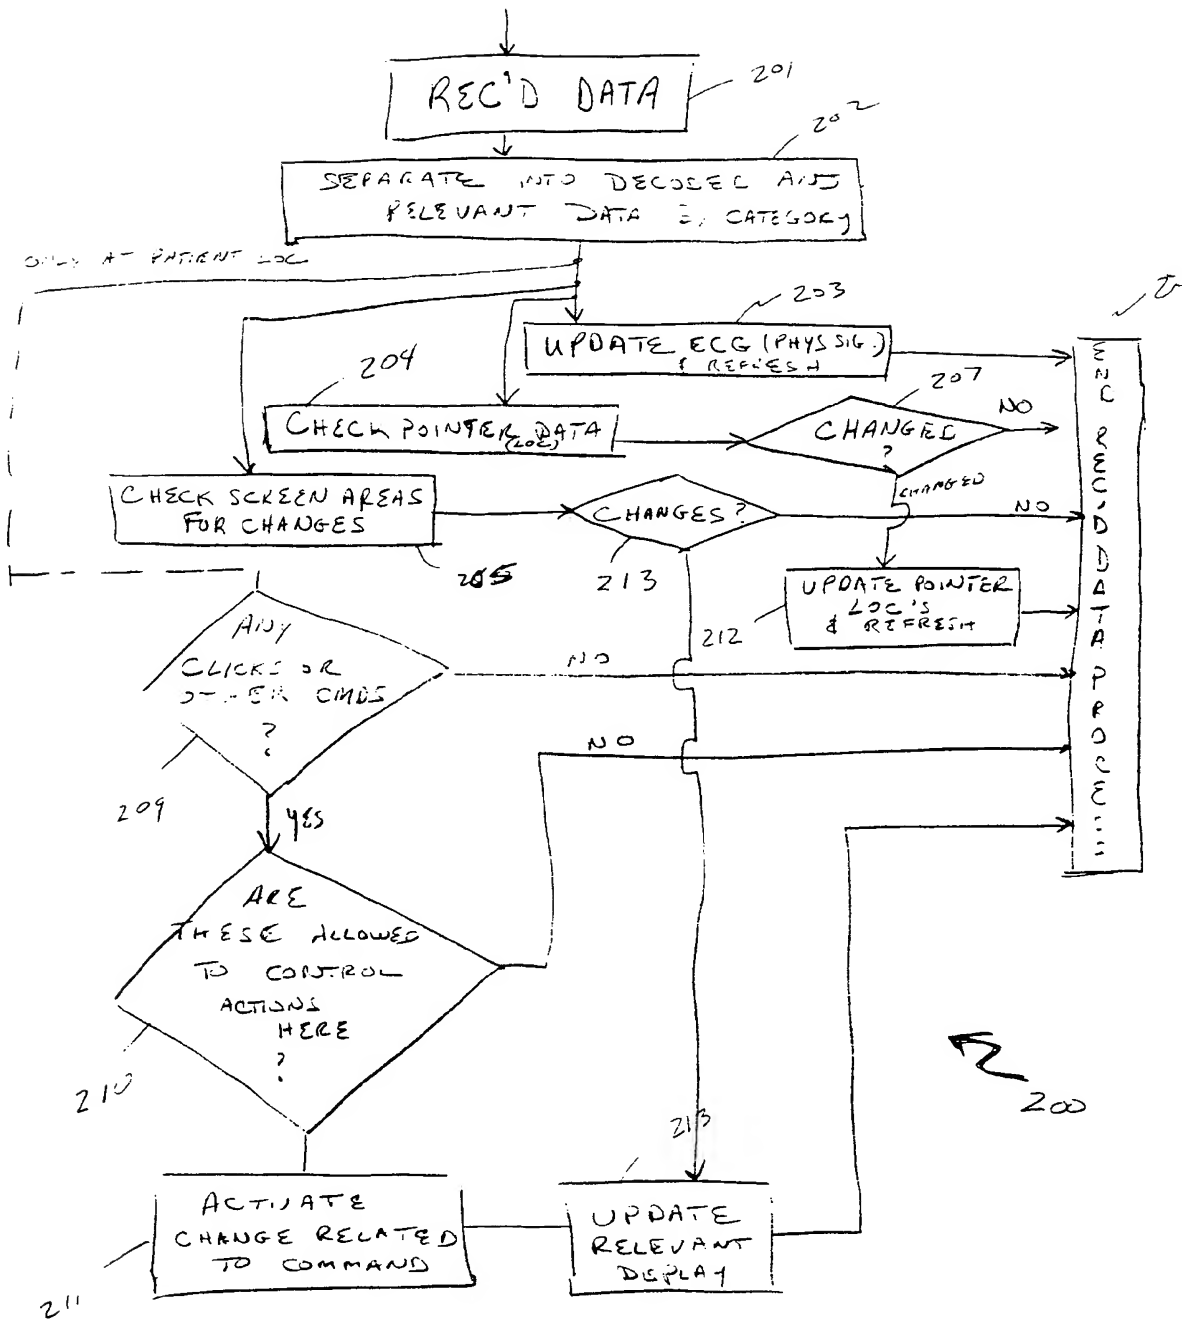 REC'D DATA
201
202
SEPARATE INTO DECODED AND
RELEVANT DATA BY CATEGORY
ONLY AT PATIENT LOC
203
UPDATE ECG (PHYS SIG.)
& REFRESH
204
CHECK POINTER DATA
(LOC)
207
CHANGED
?
NO
CHANGED
CHECK SCREEN AREAS
FOR CHANGES
205
CHANGES?
213
NO
UPDATE POINTER
LOC'S
& REFRESH
212
ANY
CLICKS OR
OTHER CMDS
?
209
NO
YES
NO
ARE
THESE ALLOWED
TO CONTROL
ACTIONS
HERE
?
210
END REC'D DATA
200
213
ACTIVATE
CHANGE RELATED
TO COMMAND
211
UPDATE
RELEVANT
DISPLAY